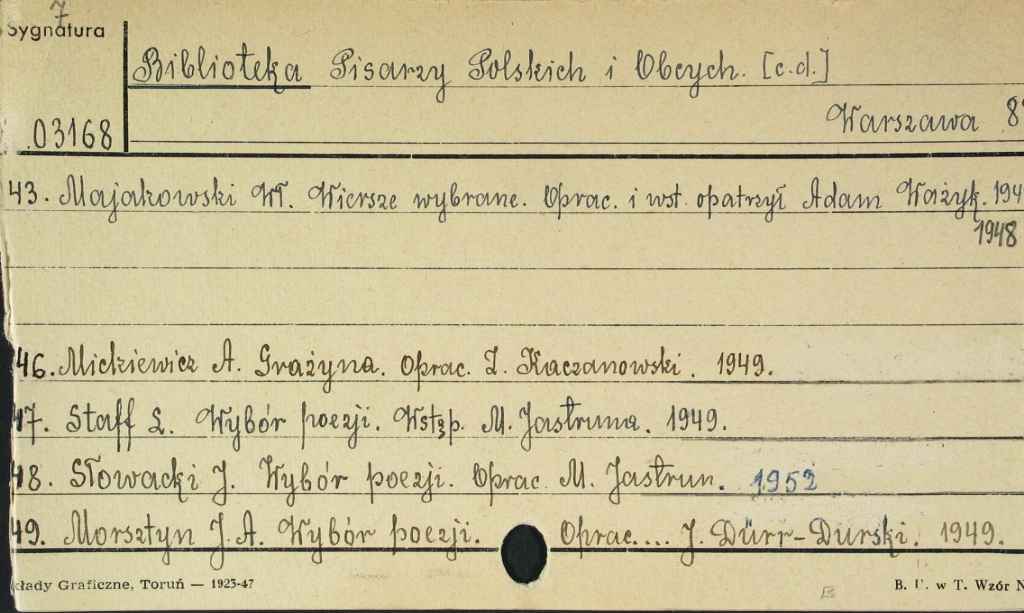 7
Sygnatura
03168
Biblioteka Pisarzy Polskich i Obcych. [c.d.]
Warszawa 8°
43. Majakowski Wł. Wiersze wybrane. Oprac. i wst. opatrzył Adam Ważyk. 194
1948
46. Mickiewicz A. Grażyna. Oprac. Z. Kaczanowski. 1949.
47. Staff L. Wybór poezji. Wstęp. M. Jastruna. 1949.
48. Słowacki J. Wybór poezji. Oprac. M. Jastrun. 1952
49. Morsztyn J. A. Wybór poezji. Oprac.... J. Dürr-Durski. 1949.
kłady Graficzne, Toruń — 1923-47
B. U. w T. Wzór N